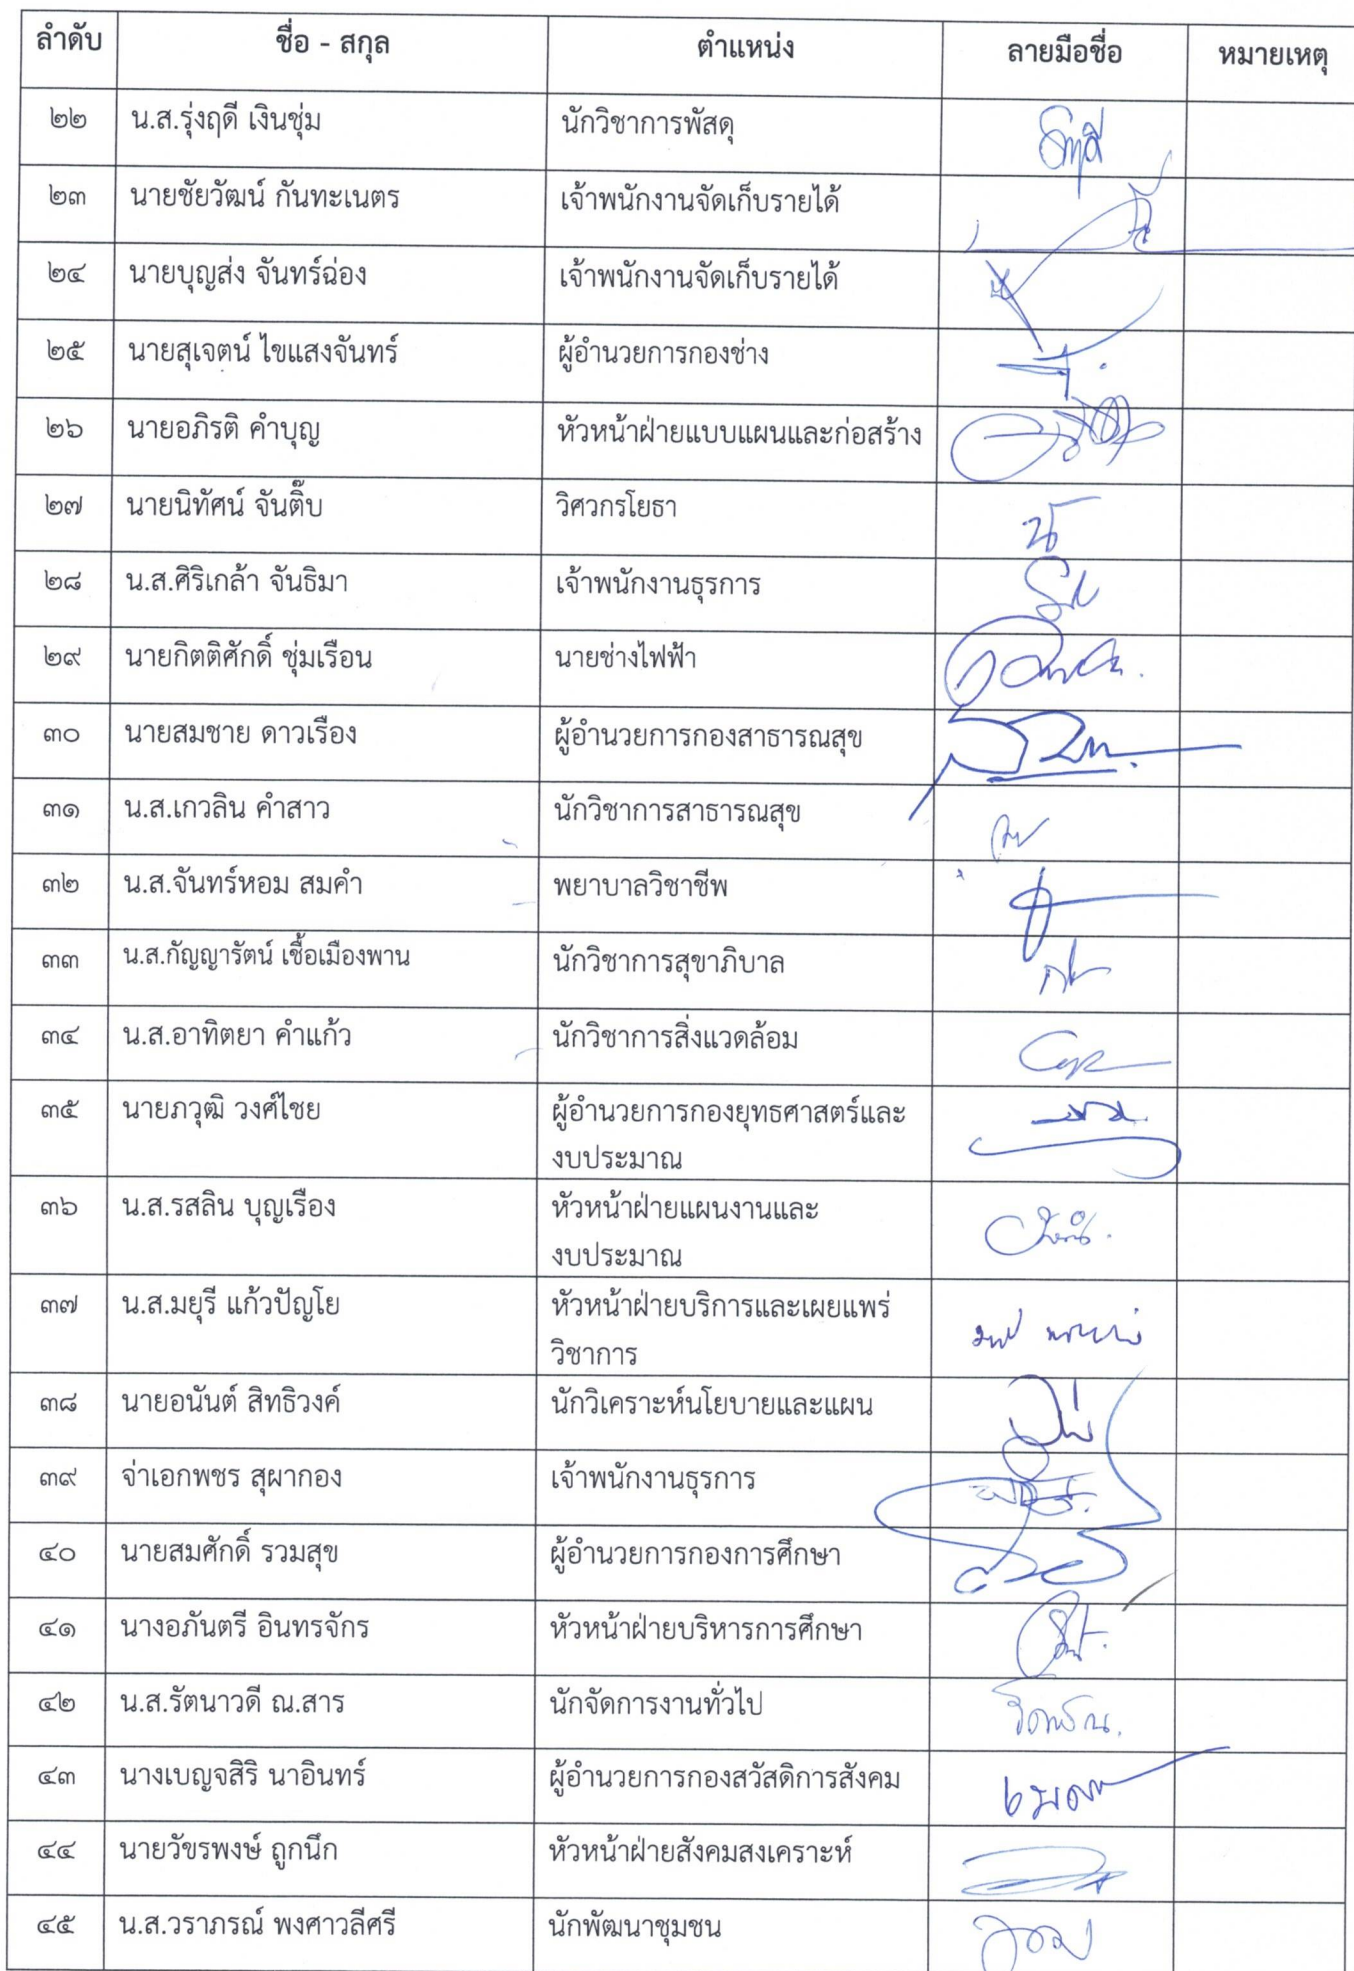 ลำดับ ชื่อ - สกุล ตำแหน่ง ลายมือชื่อ หมายเหตุ
๒๒ น.ส.รุ่งฤดี เงินชุ่ม นักวิชาการพัสดุ
๒๓ นายชัยวัฒน์ กันทะเนตร เจ้าพนักงานจัดเก็บรายได้
๒๔ นายบุญส่ง จันทร์ฉ่อง เจ้าพนักงานจัดเก็บรายได้
๒๕ นายสุเจตน์ ไขแสงจันทร์ ผู้อำนวยการกองช่าง
๒๖ นายอภิรติ คำบุญ หัวหน้าฝ่ายแบบแผนและก่อสร้าง
๒๗ นายนิทัศน์ จันติ๊บ วิศวกรโยธา
๒๘ น.ส.ศิริเกล้า จันธิมา เจ้าพนักงานธุรการ
๒๙ นายกิตติศักดิ์ ชุ่มเรือน นายช่างไฟฟ้า
๓๐ นายสมชาย ดาวเรือง ผู้อำนวยการกองสาธารณสุข
๓๑ น.ส.เกวลิน คำสาว นักวิชาการสาธารณสุข
๓๒ น.ส.จันทร์หอม สมคำ พยาบาลวิชาชีพ
๓๓ น.ส.กัญญารัตน์ เชื้อเมืองพาน นักวิชาการสุขาภิบาล
๓๔ น.ส.อาทิตยา คำแก้ว นักวิชาการสิ่งแวดล้อม
๓๕ นายภวุฒิ วงศ์ไชย ผู้อำนวยการกองยุทธศาสตร์และ
งบประมาณ
๓๖ น.ส.รสลิน บุญเรือง หัวหน้าฝ่ายแผนงานและ
งบประมาณ
๓๗ น.ส.มยุรี แก้วปัญโย หัวหน้าฝ่ายบริการและเผยแพร่
วิชาการ
๓๘ นายอนันต์ สิทธิวงค์ นักวิเคราะห์นโยบายและแผน
๓๙ จ่าเอกพชร สุผากอง เจ้าพนักงานธุรการ
๔๐ นายสมศักดิ์ รวมสุข ผู้อำนวยการกองการศึกษา
๔๑ นางอภันตรี อินทรจักร หัวหน้าฝ่ายบริหารการศึกษา
๔๒ น.ส.รัตนาวดี ณ.สาร นักจัดการงานทั่วไป
๔๓ นางเบญจสิริ นาอินทร์ ผู้อำนวยการกองสวัสดิการสังคม
๔๔ นายวัชรพงษ์ ถูกนึก หัวหน้าฝ่ายสังคมสงเคราะห์
๔๕ น.ส.วราภรณ์ พงศาวลีศรี นักพัฒนาชุมชน